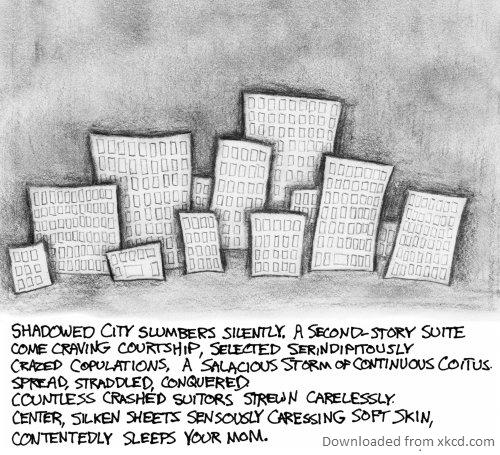 SHADOWED CITY SLUMBERS SILENTLY. A SECOND-STORY SUITE
COME CRAVING COURTSHIP, SELECTED SERINDIPITOUSLY
CRAZED COPULATIONS, A SALACIOUS STORM OF CONTINUOUS COITUS.
SPREAD, STRADDLED, CONQUERED
COUNTLESS CRASHED SUITORS STREWN CARELESSLY.
CENTER, SILKEN SHEETS SENSOUSLY CARESSING SOFT SKIN,
CONTENTEDLY SLEEPS YOUR MOM.
Downloaded from xkcd.com